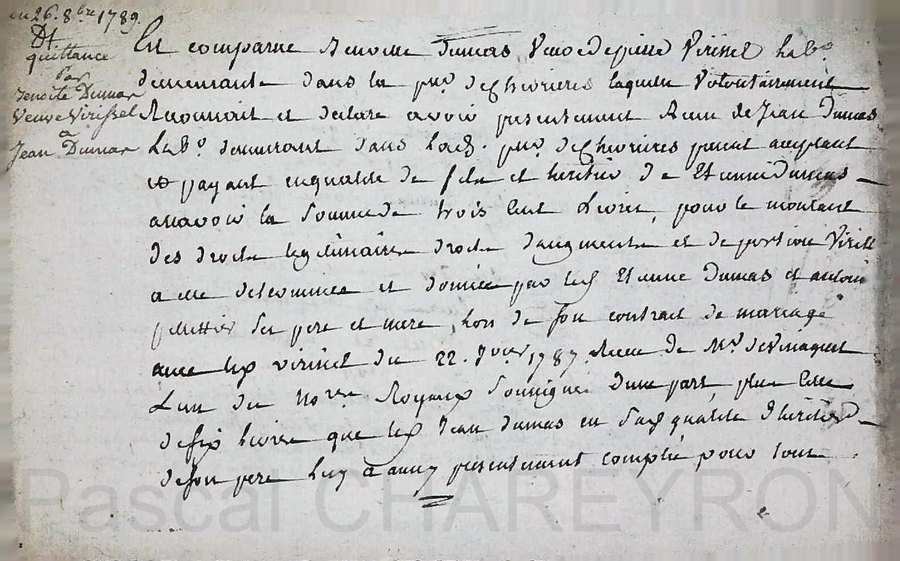 du 26. 8bre 1789.
Dt
quittance
par
Benoite Dumas
Veuve Virissel
a
Jean Dumas
Est comparue Benoitte Dumas Veuve de pierre Virissel hab.
demeurante dans la pss. de Chevrieres laquelle Volontairement
Reconnoit et declare avoir presentement Receu de Jean Dumas
Lab.r demeurant dans lad. pss. de Chevrieres present acceptant
et payant en qualité de fils et heritier de Etienne Dumas
assavoir la Somme de trois Cent Livres, pour le montant
des droits legitimaires droits daugments et de portion Virille
a elle destinnée et donnée par led Etienne Dumas et
ses pere et mere, Lors de son contrat de mariage
avec led virissel du 22. 1787. Receu de Me. devinaquet
L'un des Nores Royaux Soussignés dune part, plus Celle
de six Livres que led Jean Dumas en Sad qualité dheritier
de son pere Luy a aussy presentement compté pour tout
Pascal CHAREYRON